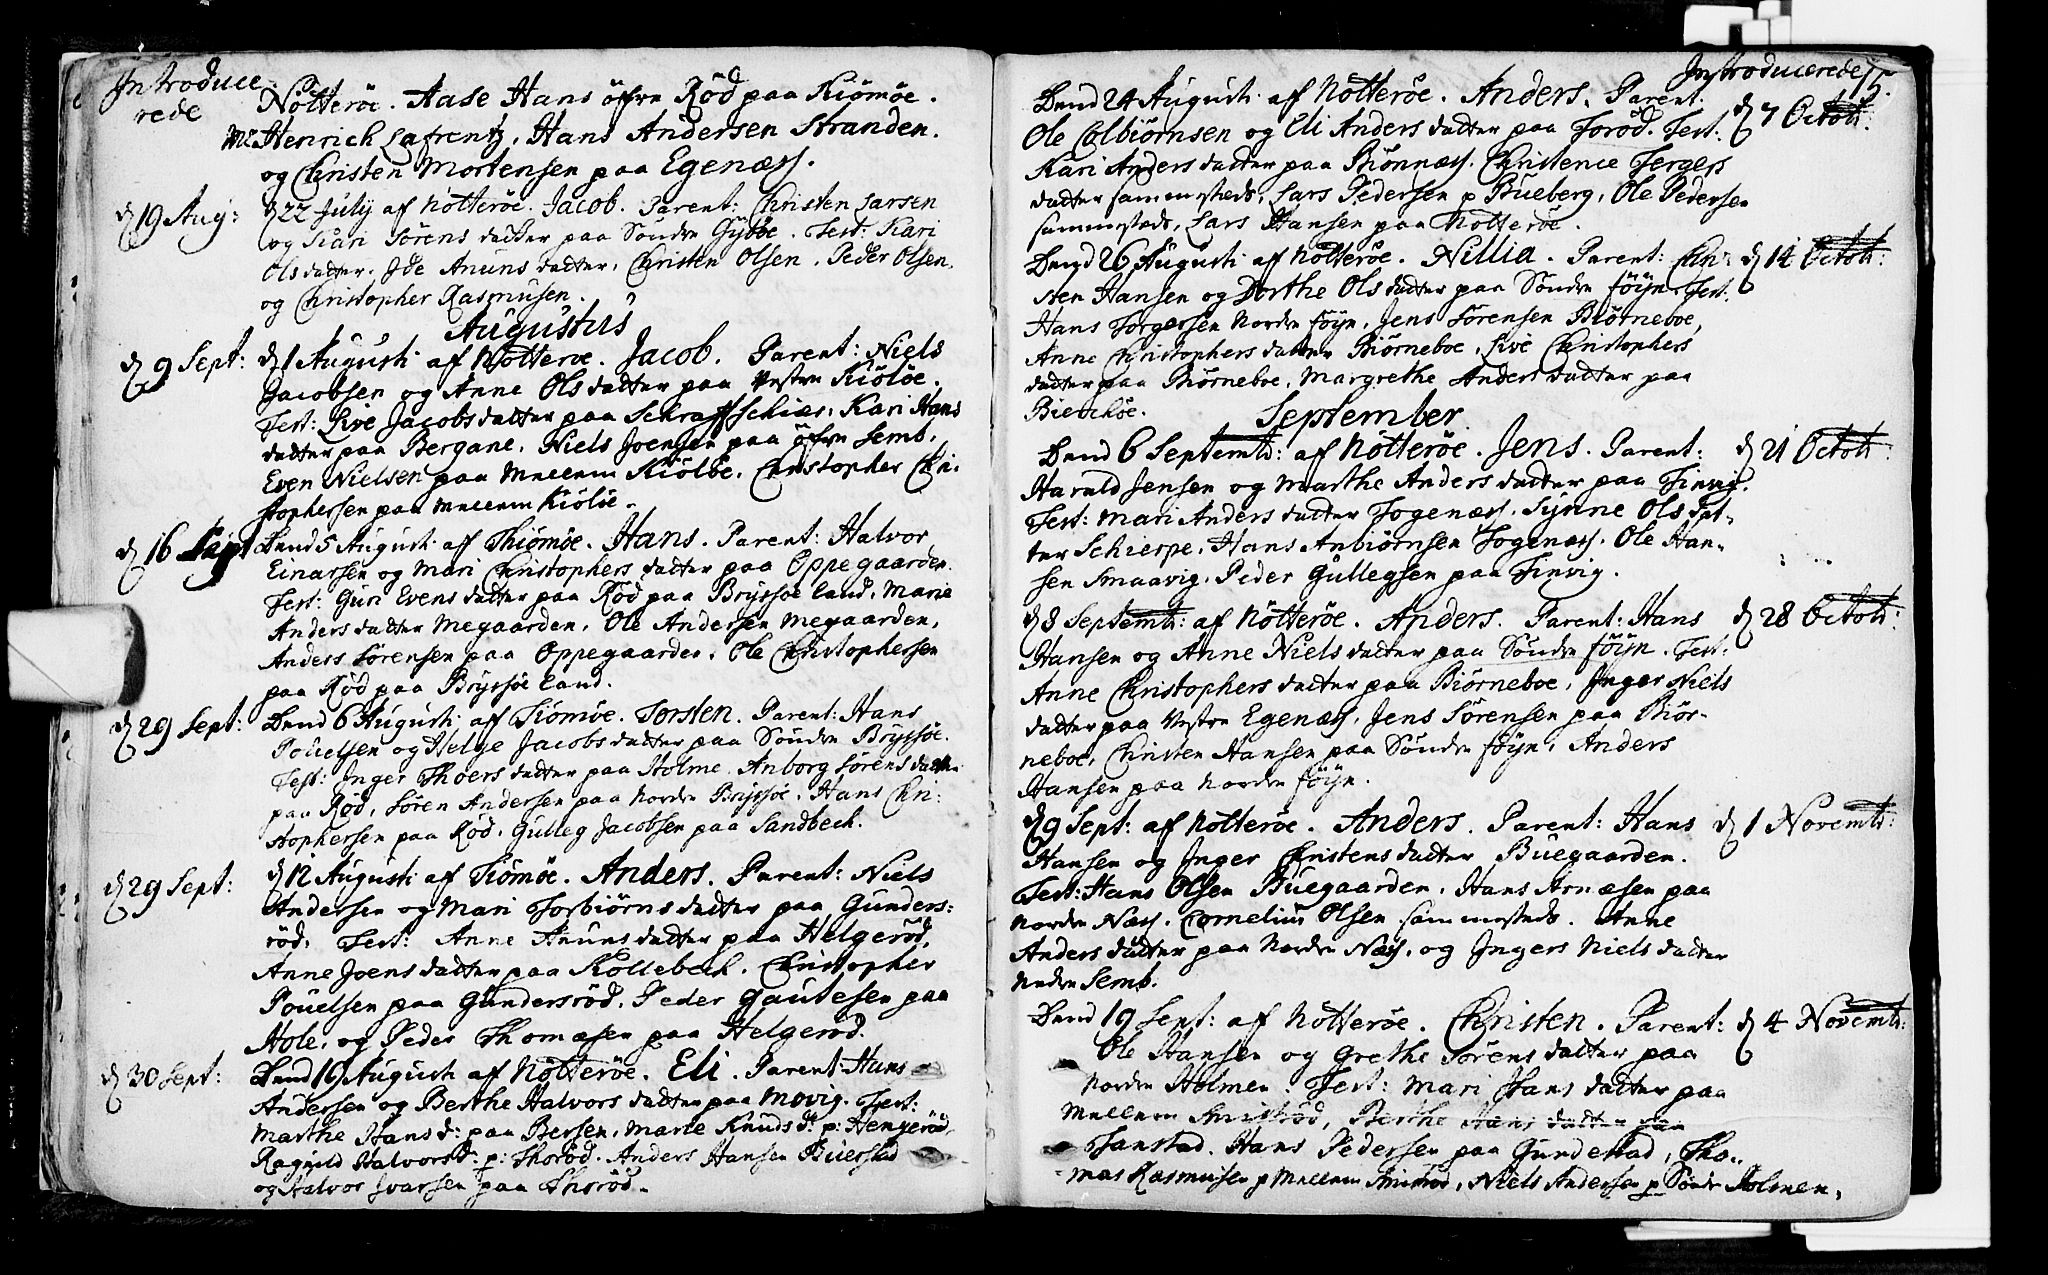 Introduce
rede
Nötteröe. Aase Hans öfre Röd paa Kiömöe.
Mr Henrich Lafrentz, Hans Andersen Stranden.
og Christen Mortensen paa Egenæss.
d 19 Aug: d 22 July af Nötteröe. Jacob. Parent: Christen Larsen
og Kari Sörens datter paa Sondre Gyböe. Test: Kari
Olsdatter. Ide Anuns datter, Christen Olsen. Peder Olsen.
og Christopher Rasmusen.
Augustus
d 9 Sept: d 1 Augusti af Nötteröe. Jacob. Parent: Niels
Jacobsen og Anne Olsdatter paa Vestre Kiölöe.
Test: Live Jacobsdatter paa Schraffschiær, Kari Hans
datter paa Bergane, Niels Joensen paa öfre Semb.
Even Nielsen paa Mellem Kiölöe. Christopher Chri-
stophersen paa Mellem Kiölöe.
d 16 Sept Dend 5 Augusti af Thiömöe. Hans. Parent: Halvor
Einarsen og Mari Christophers datter paa Oppegaarden.
Test: Guri Evens datter paa Röd paa Bryssöe land, Marie
Anders datter Megaarden, Ole Andersen Megaarden,
Anders Sörensen paa Oppegaarden, Ole Christophersen
paa Röd paa Bryssöe land.
d 29 Sept: Dend 6 Augusti af Tiömöe. Torsten. Parent: Hans
Pouelsen og Helge Jacobsdatter paa Söndre Bryssöe.
Test: Inger Thoersdatter paa Holme. Anborg Sörensdatter
paa Röd, Sören Andersen paa Nordre Bryssöe, Hans Chri-
stophersen paa Röd. Gulleg Jacobsen paa Sandbech.
d 29 Sept: d 12 Augusti af Tiömöe. Anders. Parent: Niels
Andersen og Mari Torbiörnsdatter paa Gunders:
röd. Test: Anne Anunsdatter paa Helgeröd,
Anne Joensdatter paa Kollebech. Christopher
Pouelsen paa Gundersröd, Peder Gautesen paa
Hole, og Peder Thomæsen paa Helgeröd.
d 30 Sept: Dend 19 Augusti af Nötteröe. Eli. Parent: Hans
Andersen og Berthe Halvors datter paa Movig. Test:
Marthe Hans d: paa Bersen, Marie Knuds d: p: Hengeröd,
Ragnild Halvors d: p: Thoröd. Anders Hansen Buerstad
og Halvor Ivarsen paa Thoröd.
Introducerede 15.
Dend 24 Augusti af Nötteröe. Anders. Parent: d 7 Octob:
Ole Colbiörnsen og Eli Anders datter paa Toröd. Test:
Kari Anders datter paa Biönnæss. Christence Tergers
datter sammesteds, Lars Pedersen p Bueberg, Ole Pedersen
sammesteds, Lars Hansen paa Nötteröe.
Dend 26 Augusti af Nötteröe. Nillia. Parent: Chri- d 14 Octob:
sten Hansen og Dorthe Olsdatter paa Söndre föyn. Test.
Hans Torgersen Nordre föyn, Jens Sörensen Biörneboe,
Anne Christophers datter Biörneboe, Live Christophers
datter paa Biörneboe, Margrethe Anders datter paa
Bierchöe.
September
Dend 6 Septemb: af Nötteröe. Jens. Parent: d 21 Octob:
Harald Jensen og Marthe Anders datter paa Tinvig.
Test: Mari Anders datter Fogenæss. Synne Ols Dat-
ter Schierpe, Hans Anbiörnsen Fogenæss. Ole Han-
sen Smaavig, Peder Gullegsen paa Tinvig.
d 8 Septemb: af Nötteröe. Anders. Parent: Hans d 28 Octob:
Hansen og Anne Nielsdatter paa Söndre föyn. Test:
Anne Christophers datter paa Biörneboe, Inger Niels
datter paa Vestre Egenæss, Jens Sörensen paa Biör-
neboe, Christen Hansen paa Söndre föyn, Anders
Hansen paa Nordre föyn.
d 9 Sept: af Nötteröe. Anders. Parent: Hans d 1 Novemb:
Hansen og Inger Christensdatter Buegaarden.
Test: Hans Olsen Buegaarden, Hans Arnæsen paa
Nordre Næss. Cornelius Olsen sammesteds. Anne
Anders datter paa Nordre Næss, og Ingers Niels datter
Nedre Semb.
Dend 19 Sept: af Nötteröe. Christen. Parent: d 4 Novemb:
Ole Hansen og Grethe Sörens datter paa
Nordre Holmen. Test: Mari Hans datter paa
Mellem Aniröd, Berthe Hans datter paa
Fanstad. Hans Pedersen paa Gundestad, Tho-
mas Rasmusen p Mellem Aniröd, Niels Andersen p Söndr Holmen.